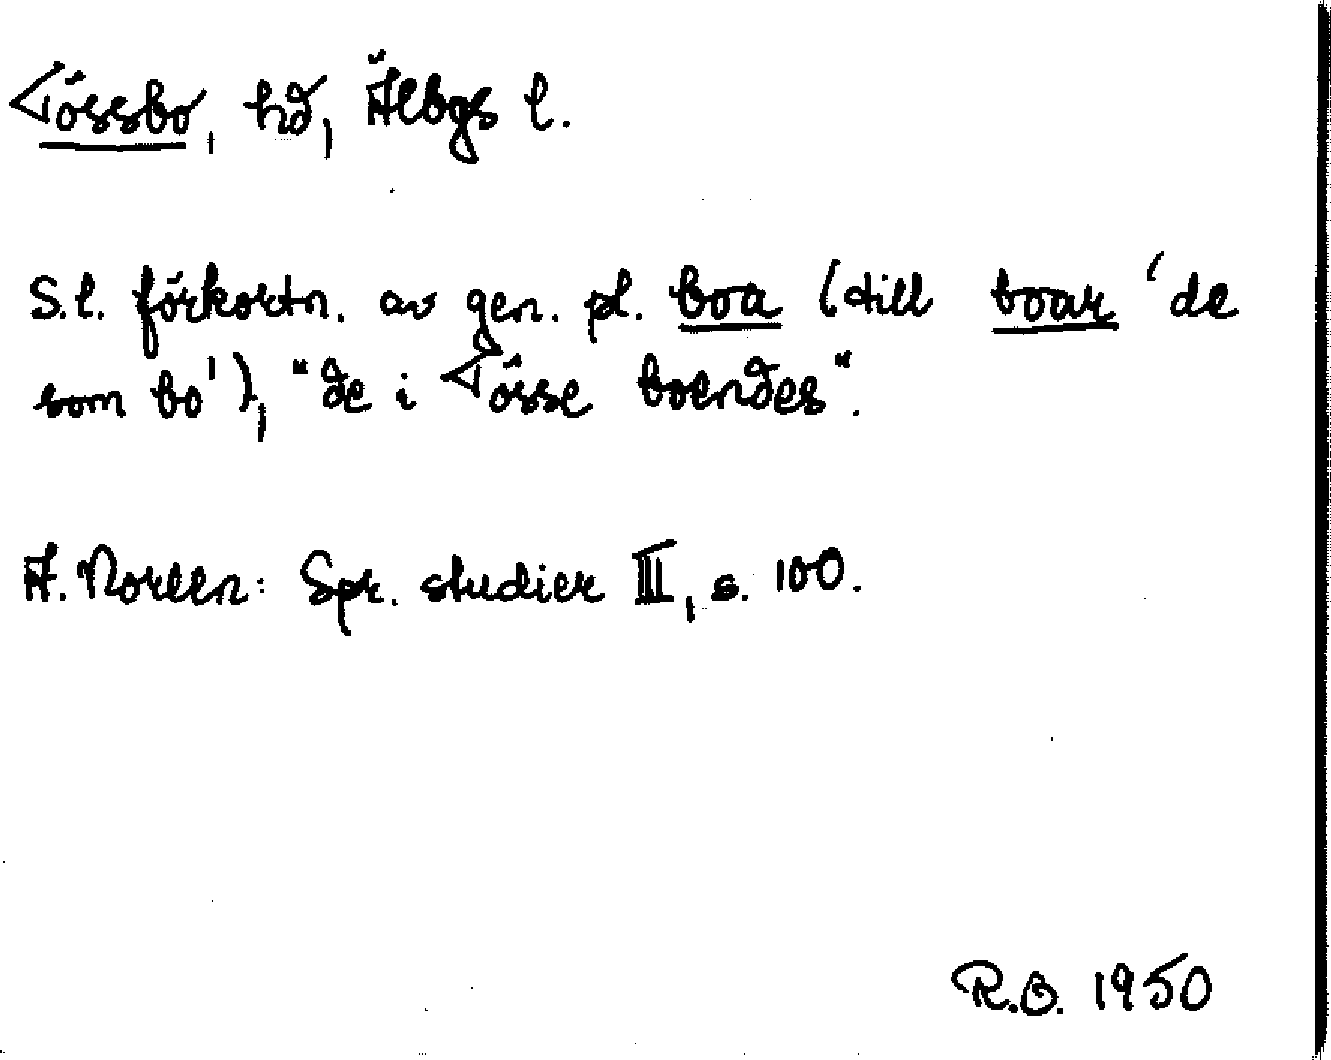 Tössbo, hd, Älvbgs l.
S.l. förkortn. av gen. pl. boa (till boar 'de
som bo'), "de i Tösse boendes".
A. Noreen: Spr. studier III, s. 100.
R.O. 1950